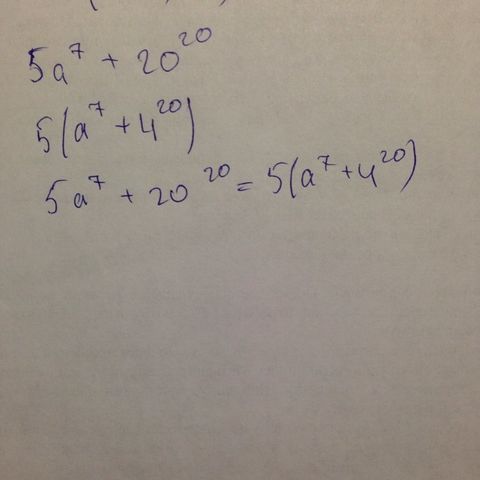 5a⁷ + 20²⁰
5(a⁷ + 4²⁰)
5a⁷ + 20²⁰ = 5(a⁷ + 4²⁰)